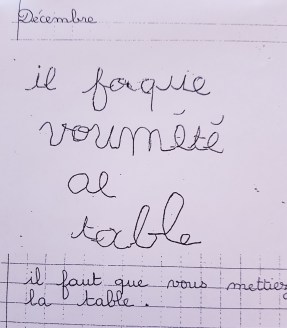 Décembre
il foque
voumété
al
table
il faut que vous mettiez
la table.